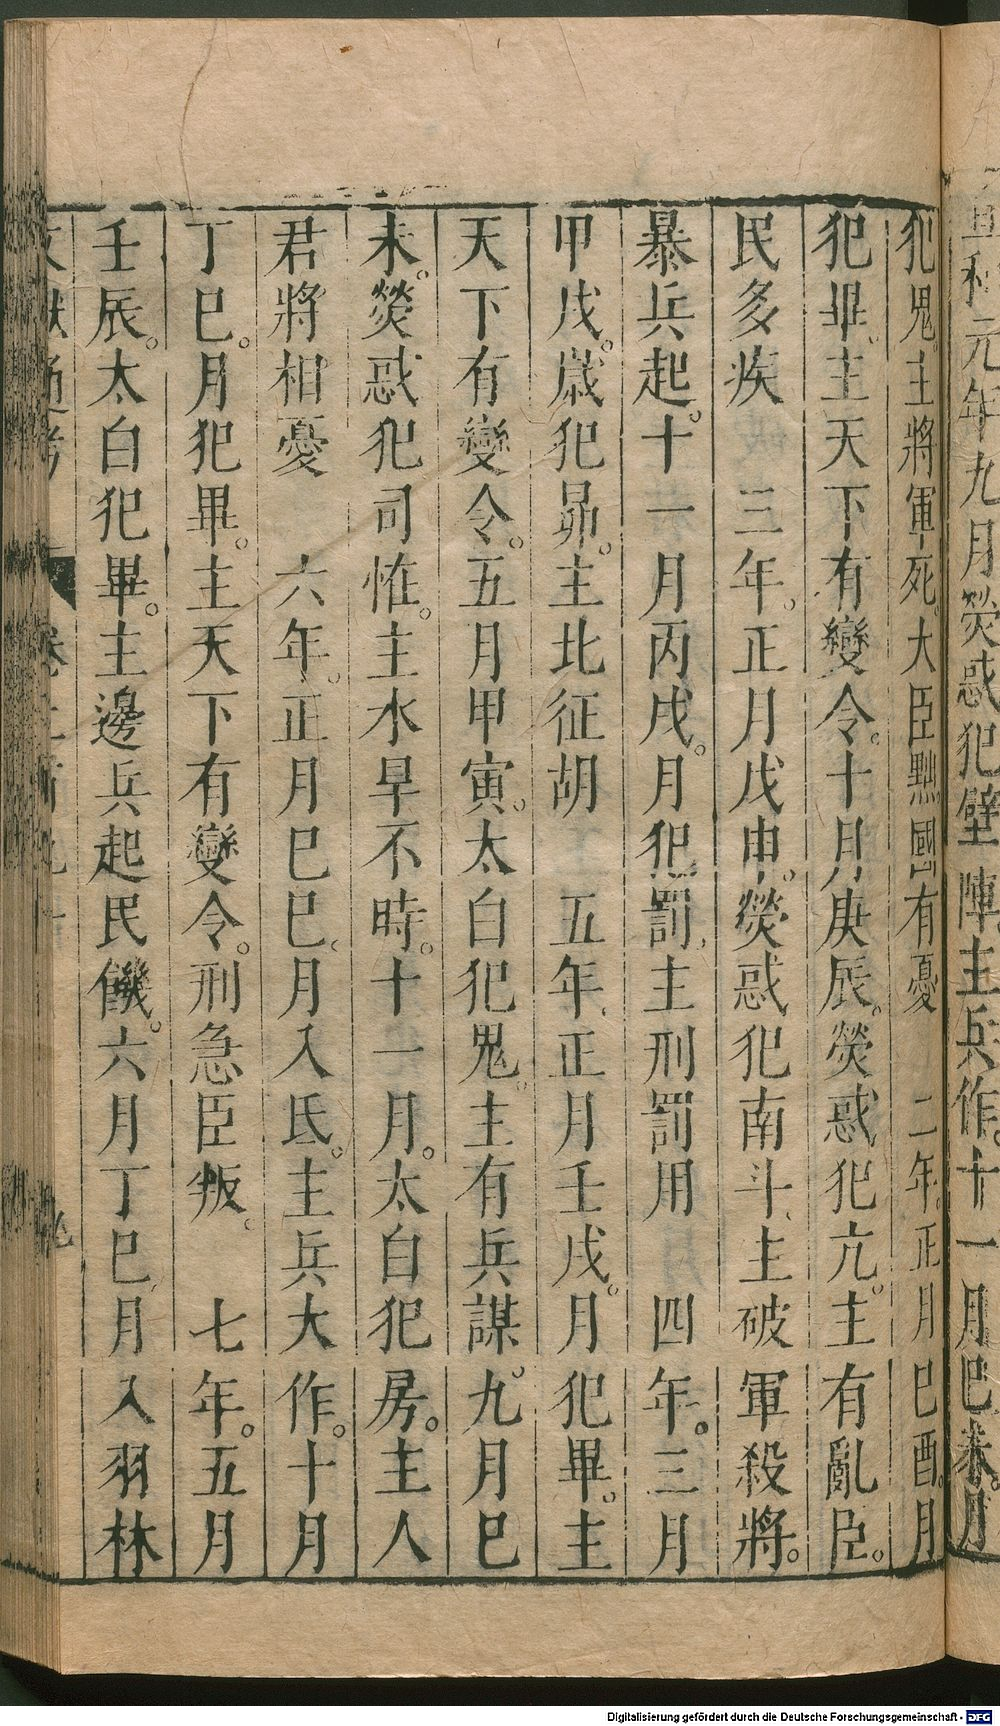 重和元年九月熒惑犯壁陣主兵作十一月巳未月
犯鬼主將軍死大臣黜國有憂　二年正月巳酉月
犯畢主天下有變令十月庚辰熒惑犯亢主有亂臣
民多疾　三年正月戊申熒惑犯南斗主破軍殺將
暴兵起十一月丙戌月犯罰主刑罰用　四年三月
甲戌歲犯昴主北征胡　五年正月壬戌月犯畢主
天下有變令五月甲寅太白犯鬼主有兵謀九月巳
未熒惑犯司恠主水旱不時十一月太白犯房主人
君將相憂　六年正月巳巳月入氐主兵大作十月
丁巳月犯畢主天下有變令刑急臣叛　七年五月
壬辰太白犯畢主邊兵起民饑六月丁巳月入羽林
文獻通考
Digitalisierung gefördert durch die Deutsche Forschungsgemeinschaft - DFG